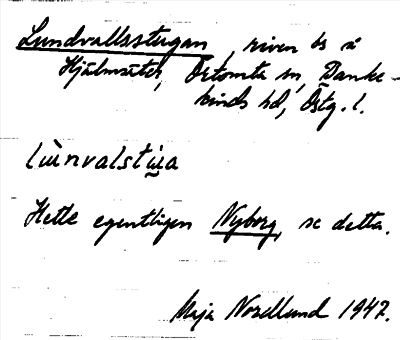 Lundvallsstugan, riven bs å
Hjälmsäter, Östomta sn, Banke-
kinds hd, Östg. l.
lùnvalstu̲a
Hette egentligen Nyborg, se detta.
Maja Nozellund 1947.